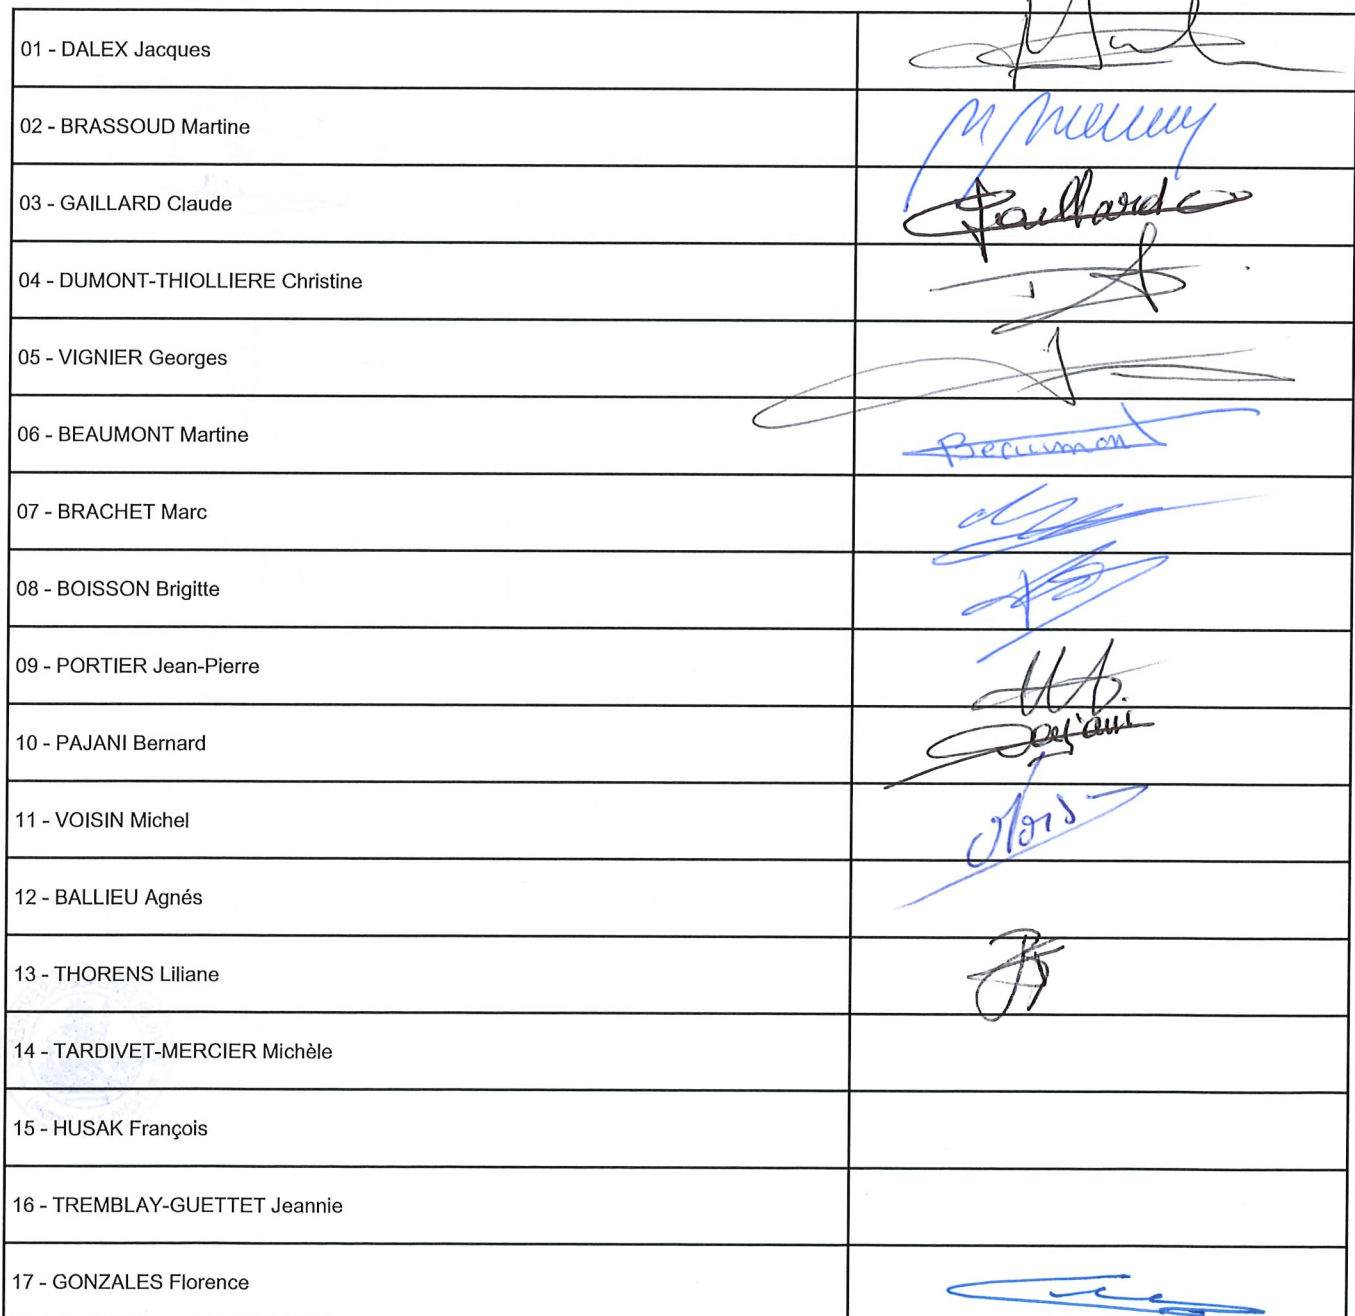 01 - DALEX Jacques
02 - BRASSOUD Martine
03 - GAILLARD Claude
Gaillard
04 - DUMONT-THIOLLIERE Christine
05 - VIGNIER Georges
06 - BEAUMONT Martine
Beaumont
07 - BRACHET Marc
08 - BOISSON Brigitte
09 - PORTIER Jean-Pierre
10 - PAJANI Bernard
Pajani
11 - VOISIN Michel
12 - BALLIEU Agnés
13 - THORENS Liliane
14 - TARDIVET-MERCIER Michèle
15 - HUSAK François
16 - TREMBLAY-GUETTET Jeannie
17 - GONZALES Florence